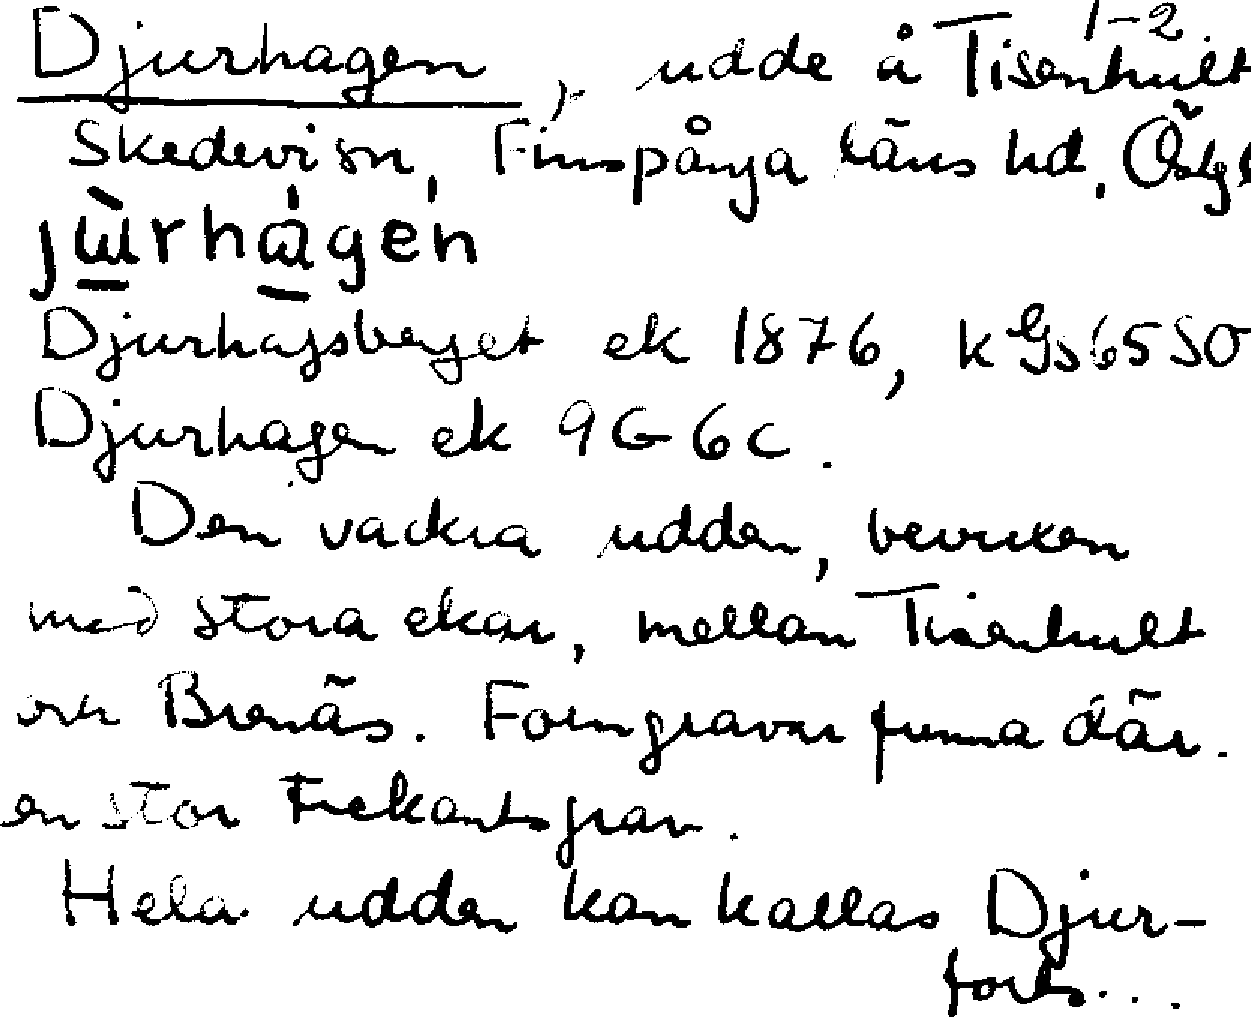 Djurhagen, udde å Tisenhult 1-2.
Skedevi sn, Finspånga läns hd, Östg
jùrhágen
Djurhagsberget ek 1876, k Gs 65 SO
Djurhagen ek 9G 6c.
Den vackra udden, bevuxen
med stora ekar, mellan Tisenhult
och Brenäs. Forngravar funna där.
en stor trekantsgrav.
Hela udden kan kallas Djur-
forts...